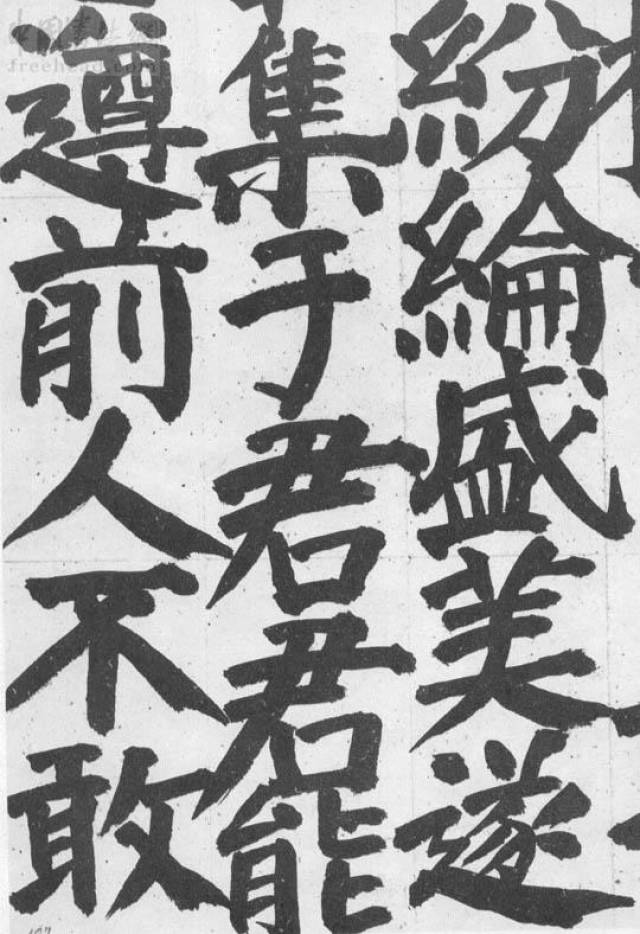 紛綸盛美遂
集于君君能
遵前人不敢
中国書法網
freehead.com